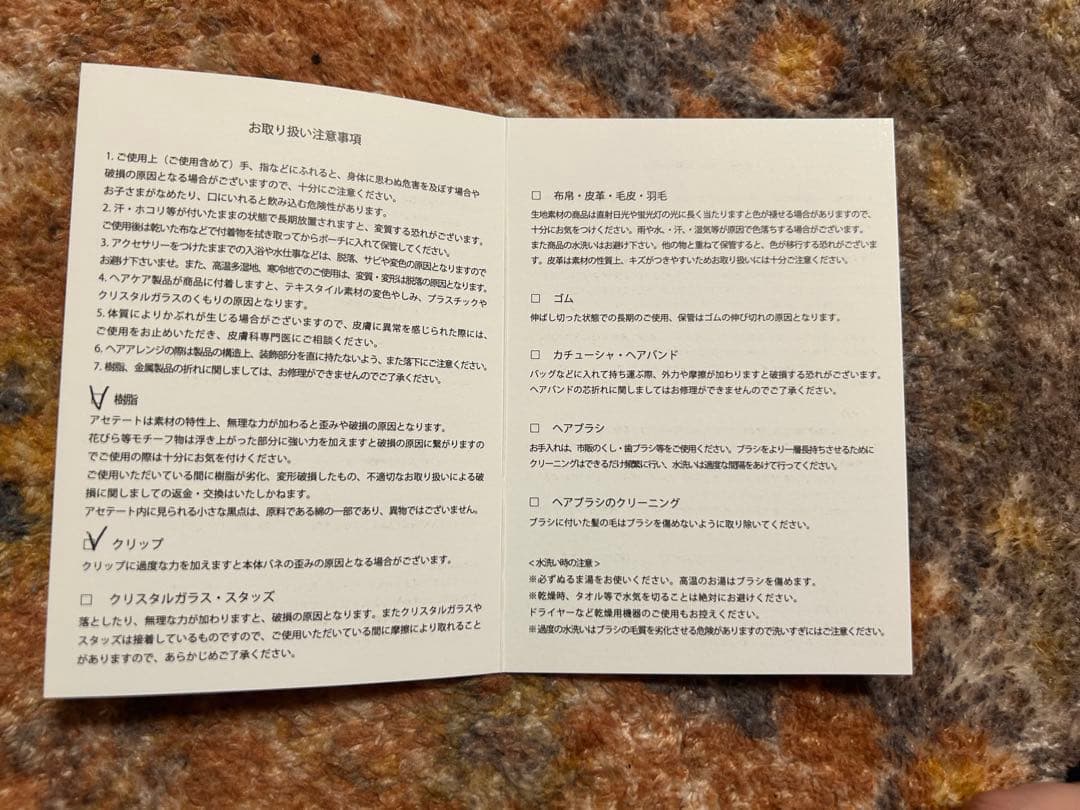 お取り扱い注意事項
1. ご使用上（ご使用含めて）手、指などにふれると、身体に思わぬ危害を及ぼす場合や
破損の原因となる場合がございますので、十分にご注意ください。
お子さまがなめたり、口にいれると飲み込む危険性があります。
2. 汗・ホコリ等が付いたままの状態で長期放置されますと、変質する恐れがございます。
ご使用後は乾いた布などで付着物を拭き取ってからポーチに入れて保管してください。
3. アクセサリーをつけたままでの入浴や水仕事などは、脱落、サビや変色の原因となりますので
お避け下さいませ。また、高温多湿地、寒冷地でのご使用は、変質・変形は脱落の原因となります。
4. ヘアケア製品が商品に付着しますと、テキスタイル素材の変色やしみ、プラスチックや
クリスタルガラスのくもりの原因となります。
5. 体質によりかぶれが生じる場合がございますので、皮膚に異常を感じられた際には、
ご使用をお止めいただき、皮膚科専門医にご相談ください。
6. ヘアアレンジの際は製品の構造上、装飾部分を直に持たないよう、また落下にご注意ください。
7. 樹脂、金属製品の折れに関しましては、お修理ができませんのでご了承ください。
☑ 樹脂
アセテートは素材の特性上、無理な力が加わると歪みや破損の原因となります。
花びら等モチーフ物は浮き上がった部分に強い力を加えますと破損の原因に繋がりますの
でご使用の際は十分にお気を付けください。
ご使用いただいている間に樹脂が劣化、変形破損したもの、不適切なお取り扱いによる破
損に関しましての返金・交換はいたしかねます。
アセテート内に見られる小さな黒点は、原料である綿の一部であり、異物ではございません。
☑ クリップ
クリップに過度な力を加えますと本体バネの歪みの原因となる場合がございます。
□ クリスタルガラス・スタッズ
落としたり、無理な力が加わりますと、破損の原因となります。またクリスタルガラスや
スタッズは接着しているものですので、ご使用いただいている間に摩擦により取れること
がありますので、あらかじめご了承ください。
□ 布帛・皮革・毛皮・羽毛
生地素材の商品は直射日光や蛍光灯の光に長く当たりますと色が褪せる場合がありますので、
十分にお気をつけください。雨や水、・汗、・湿気等が原因で色落ちする場合がございます。
また商品の水洗いはお避け下さい。他の物と重ねて保管すると、色が移行する恐れがございま
す。皮革は素材の性質上、キズがつきやすいためお取り扱いには十分ご注意ください。
□ ゴム
伸ばし切った状態での長期のご使用、保管はゴムの伸び切れの原因となります。
□ カチューシャ・ヘアバンド
バッグなどに入れて持ち運ぶ際、外力や摩擦が加わりますと破損する恐れがございます。
ヘアバンドの芯折れに関しましてはお修理ができませんのでご了承ください。
□ ヘアブラシ
お手入れは、市販のくし・歯ブラシ等をご使用ください。ブラシをより一層長持ちさせるために
クリーニングはできるだけ頻繁に行い、水洗いは適度な間隔をあけて行ってください。
□ ヘアブラシのクリーニング
ブラシに付いた髪の毛はブラシを傷めないように取り除いてください。
＜水洗い時の注意＞
※必ずぬるま湯をお使いください。高温のお湯はブラシを傷めます。
※乾燥時、タオル等で水気を切ることは絶対にお避けください。
ドライヤーなど乾燥用機器のご使用もお控えください。
※過度の水洗いはブラシの毛質を劣化させる危険がありますので洗いすぎにはご注意ください。